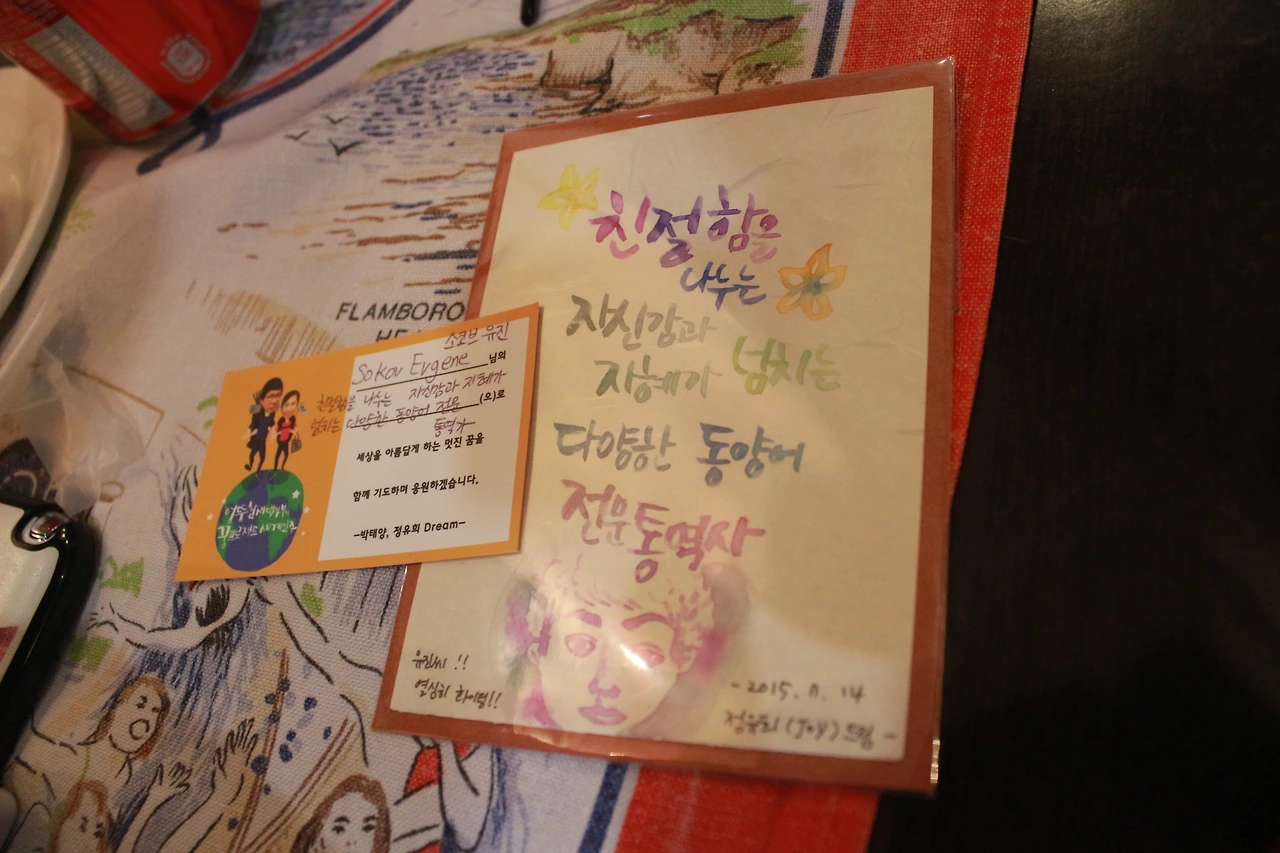 친절함을
나누는
자신감과
지혜가 넘치는
다양한 동양어
전문통역사
유진씨 !!
열심히 화이팅!!
- 2015. 11. 14
정유희 (Joy) 드림 -
FLAMBORO
HE
소코브 유진
Sokov Evgene 님의
친절함을 나누는 자신감과 지혜가
넘치는 다양한 동양어 전문 (으)로
통역가
세상을 아름답게 하는 멋진 꿈을
함께 기도하며 응원하겠습니다.
-박태양, 정유희 Dream-